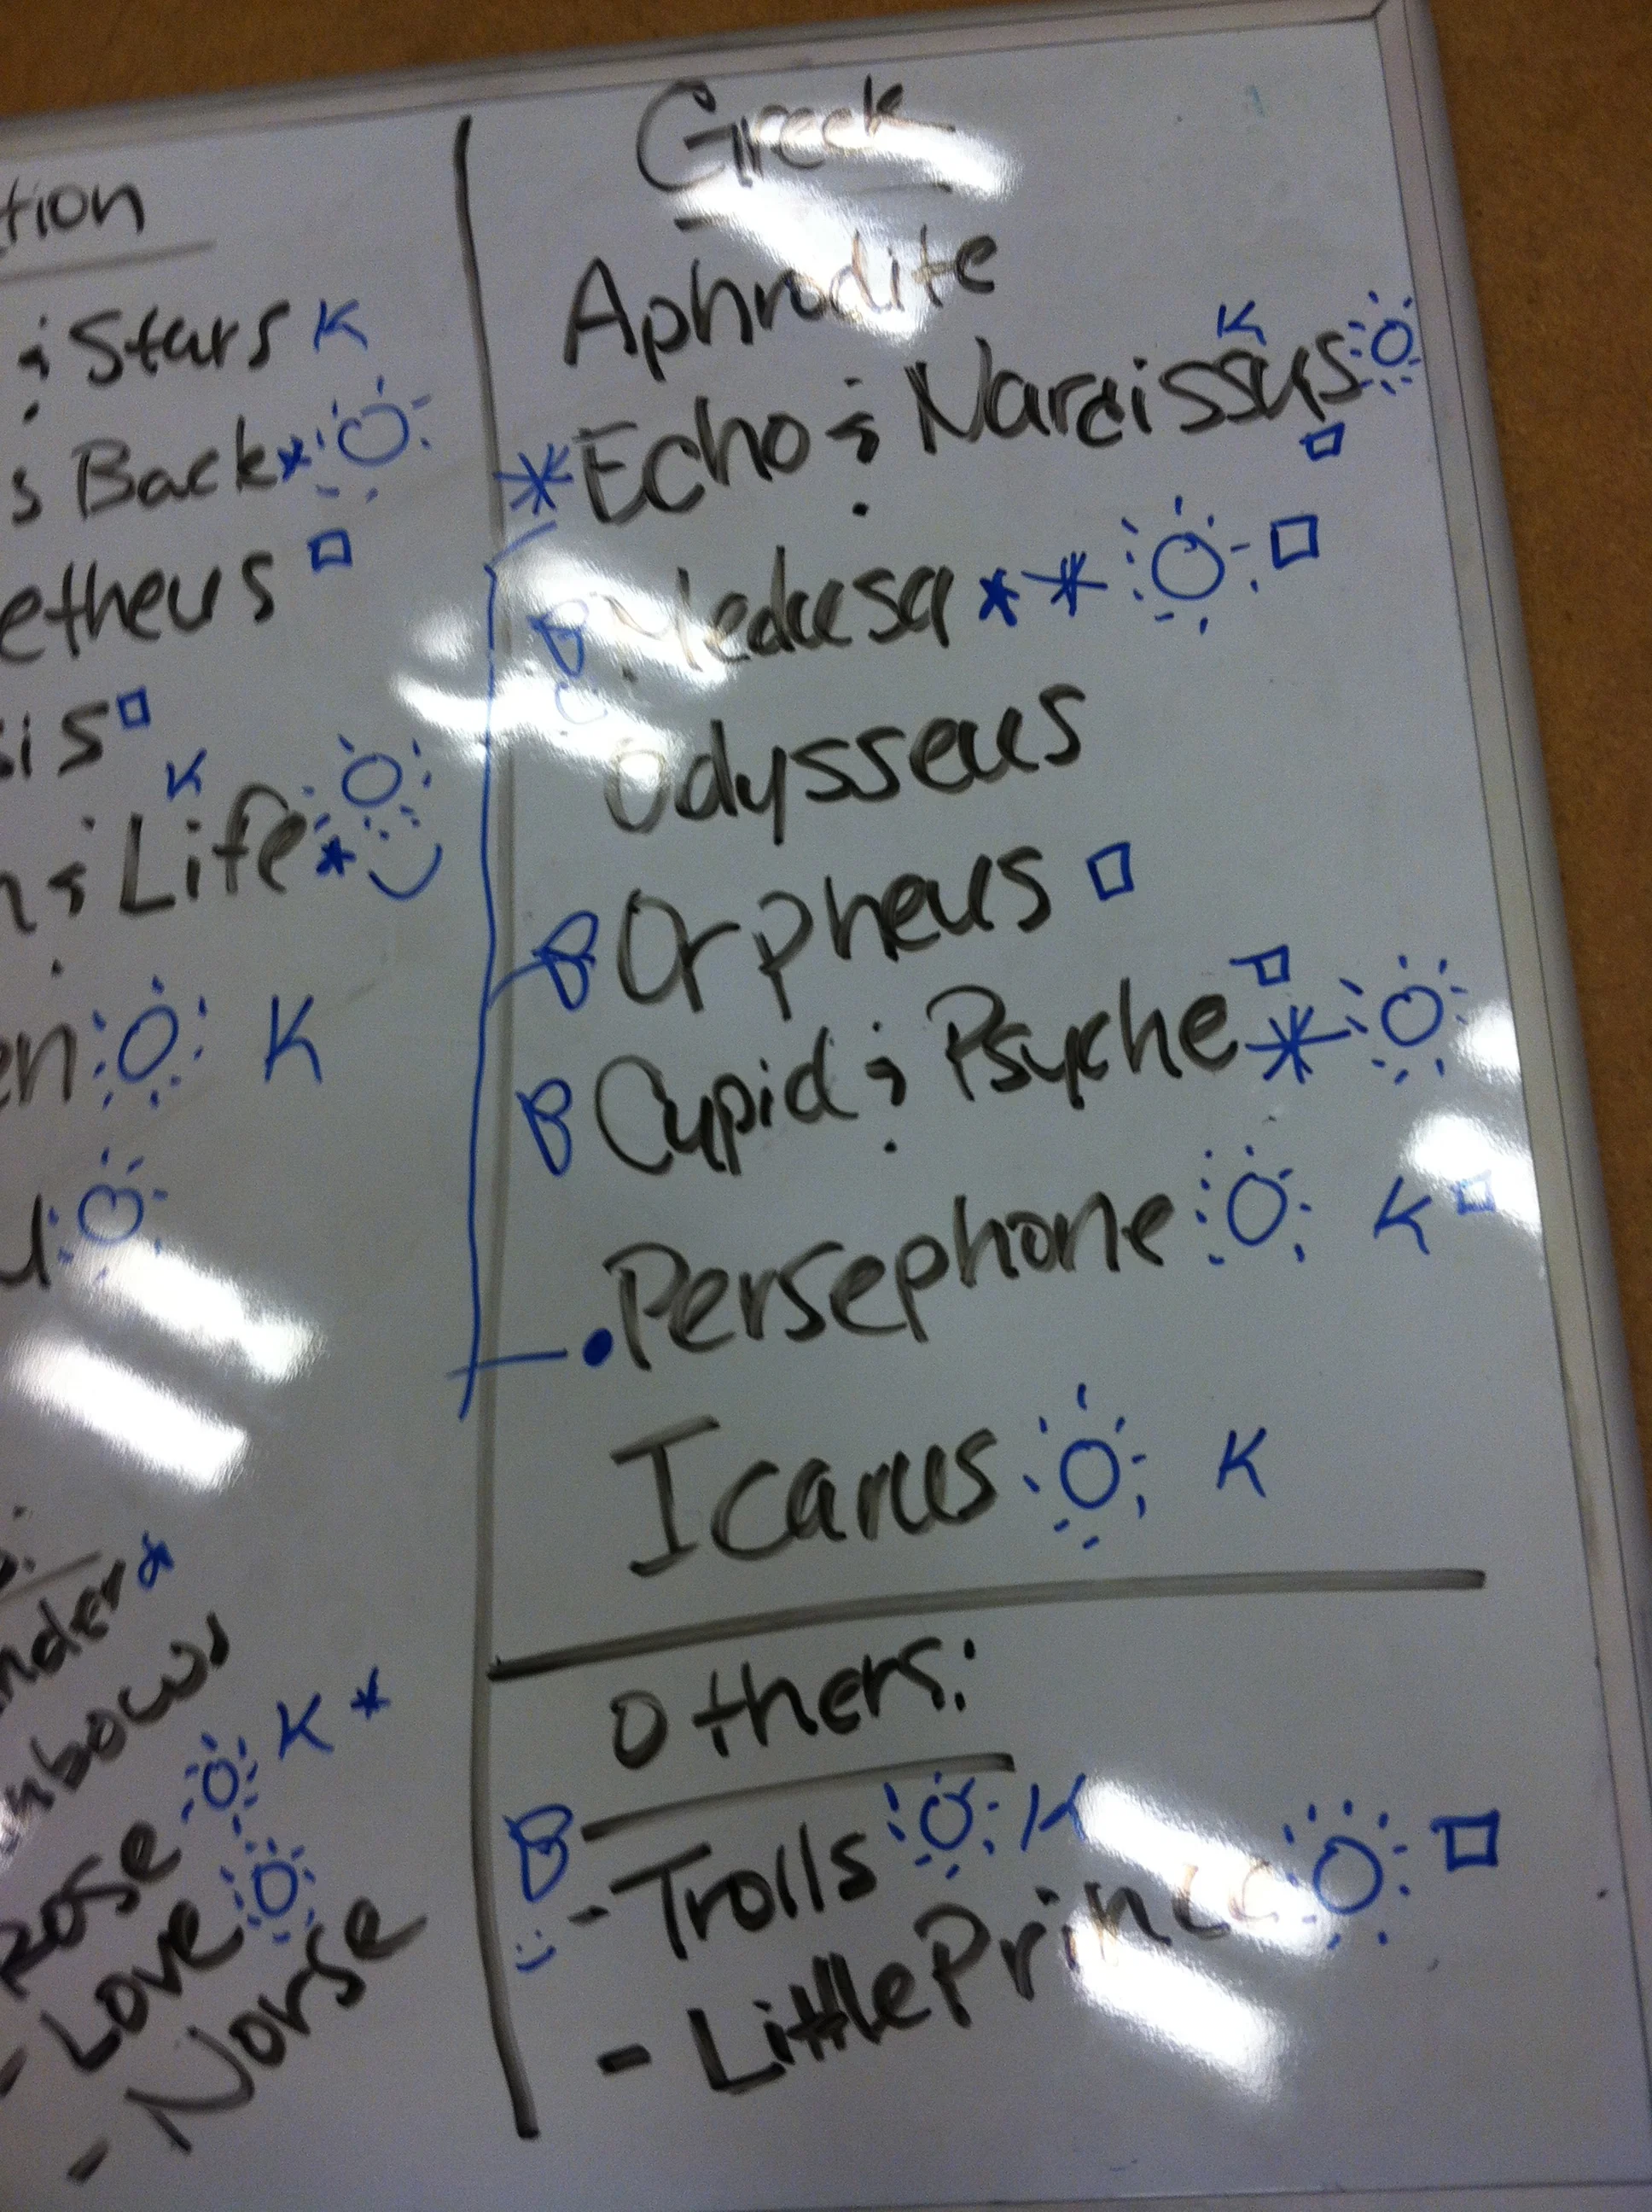 tion
& Stars K
s Back
etheus
sis
K
& Life
en K
u
nder
nbows
Rose K
- Love
- Norse
Greek
Aphrodite
K
Echo & Narcissus
B Medusa
Odysseus
B Orpheus
B Cupid & Psyche
Persephone K
Icarus K
Others:
B
- Trolls K
- Little Prince